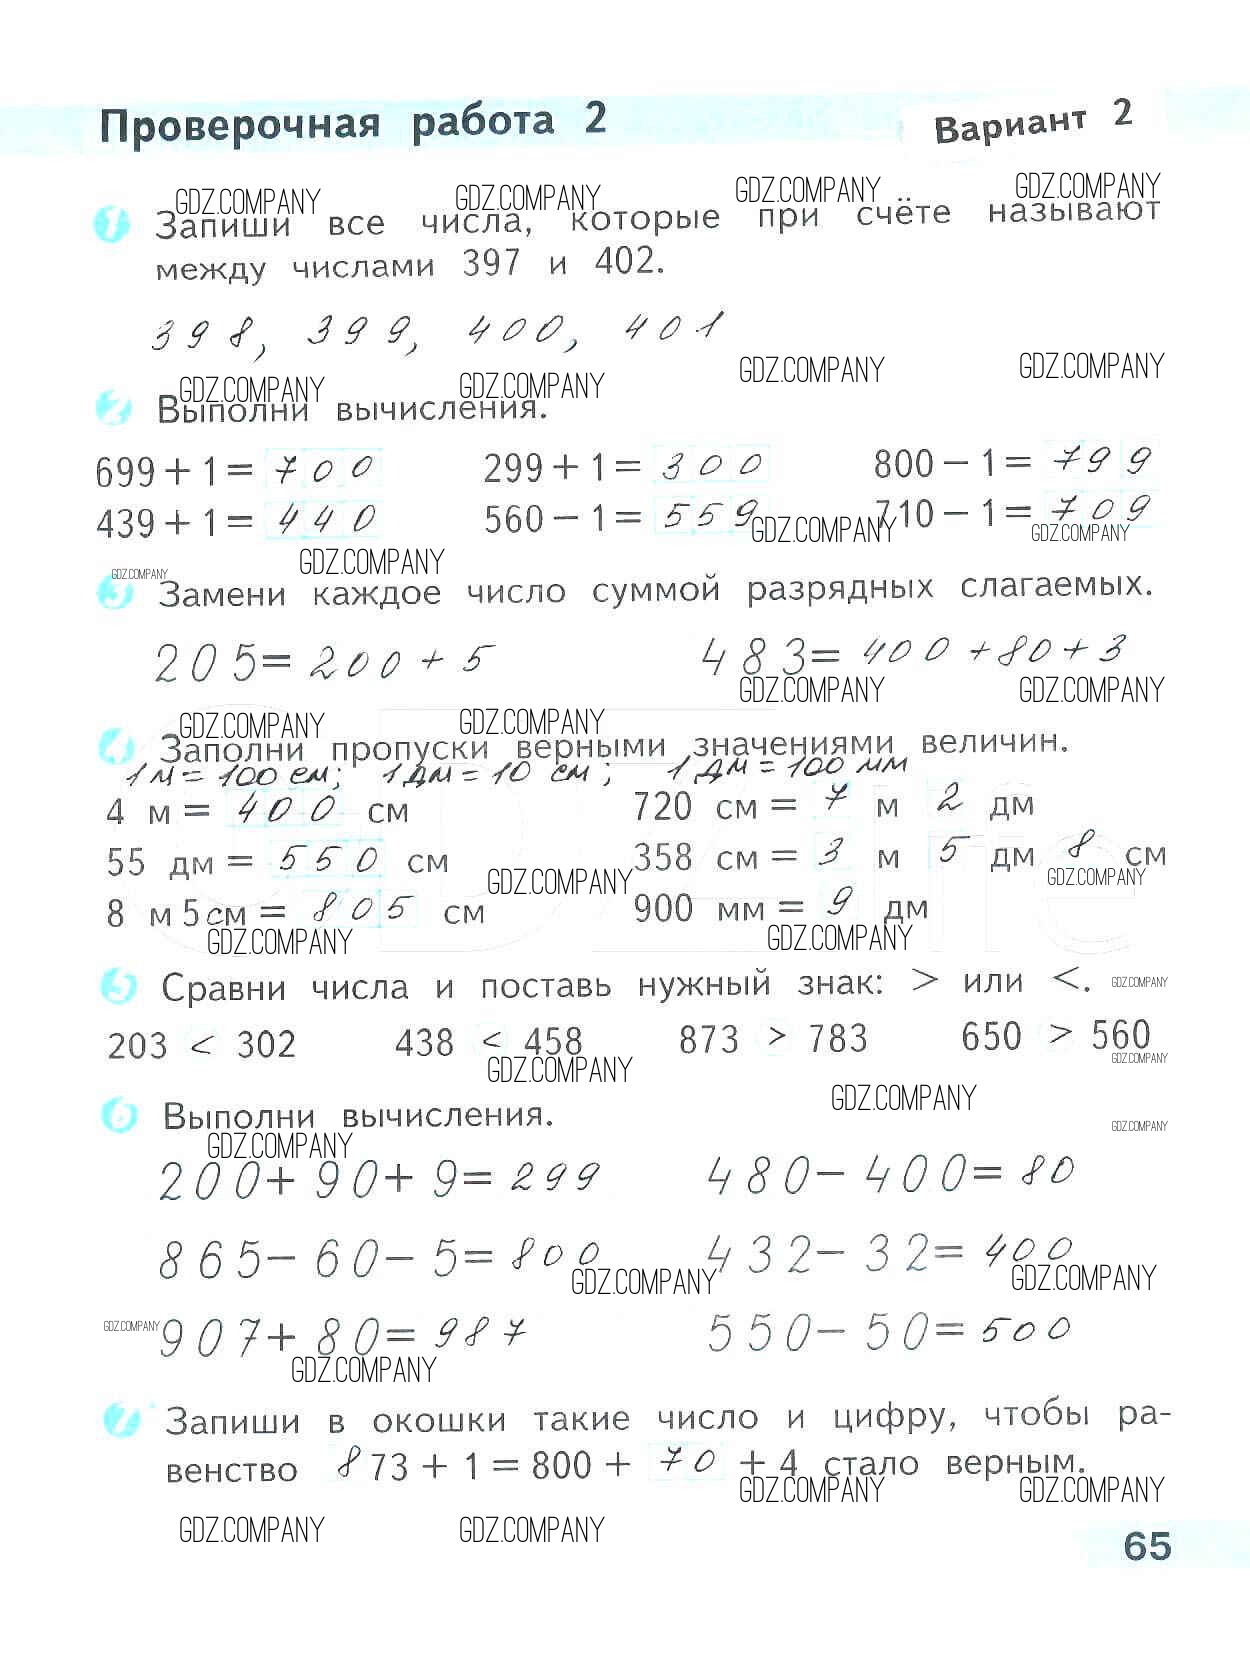 Проверочная работа 2 Вариант 2
GDZ.COMPANY GDZ.COMPANY GDZ.COMPANY GDZ.COMPANY
1 Запиши все числа, которые при счёте называют
между числами 397 и 402.
398, 399, 400, 401
GDZ.COMPANY GDZ.COMPANY GDZ.COMPANY GDZ.COMPANY
2 Выполни вычисления.
699 + 1 = 700 299 + 1 = 300 800 − 1 = 799
439 + 1 = 440 560 − 1 = 559 710 − 1 = 709
GDZ.COMPANY GDZ.COMPANY GDZ.COMPANY GDZ.COMPANY
3 Замени каждое число суммой разрядных слагаемых.
205 = 200 + 5 483 = 400 + 80 + 3
GDZ.COMPANY GDZ.COMPANY GDZ.COMPANY GDZ.COMPANY
4 Заполни пропуски верными значениями величин.
1 м = 100 см; 1 дм = 10 см; 1 дм = 100 мм
4 м = 400 см 720 см = 7 м 2 дм
55 дм = 550 см 358 см = 3 м 5 дм 8 см
GDZ.COMPANY GDZ.COMPANY
8 м 5 см = 805 см 900 мм = 9 дм
GDZ.COMPANY GDZ.COMPANY
5 Сравни числа и поставь нужный знак: > или <. GDZ.COMPANY
203 < 302 438 < 458 873 > 783 650 > 560
GDZ.COMPANY GDZ.COMPANY
GDZ.COMPANY
6 Выполни вычисления. GDZ.COMPANY
GDZ.COMPANY
200 + 90 + 9 = 299 480 − 400 = 80
865 − 60 − 5 = 800 432 − 32 = 400
GDZ.COMPANY GDZ.COMPANY
GDZ.COMPANY 907 + 80 = 987 550 − 50 = 500
GDZ.COMPANY
7 Запиши в окошки такие число и цифру, чтобы ра-
венство 873 + 1 = 800 + 70 + 4 стало верным.
GDZ.COMPANY GDZ.COMPANY
GDZ.COMPANY GDZ.COMPANY
65